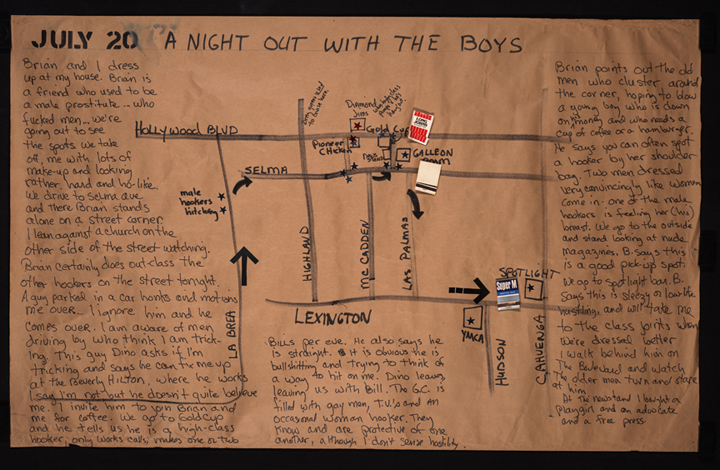 JULY 20 A NIGHT OUT WITH THE BOYS
Brian and I dress
up at my house. Brian is
a friend who used to be
a male prostitute... who
fucked men... we're
going out to see
the spots. We take
off, me with lots of
make-up and looking
rather hard and ho-like
We drive to Selma ave.
and there Brian stands
alone on a street corner
I lean against a church on the
other side of the street watching.
Brian certainly does outclass the
other hookers on the street tonight.
A guy parked in a car honks and motions
me over. I ignore him and he
comes over. I am aware of men
driving by who think I am trick-
ing. This guy Dino asks if I'm
tricking and says he can fix me up
at the Beverly HILTON, where he works
I say I'm not but he doesn't quite believe
me. I invite him to join Brian and
me for coffee. We go to Gold Cup
and he tells us he is a high-class
hooker, only works calls, makes one or two
Bills per eve. He also says he
is straight. It is obvious he is
bullshitting and trying to think of
a way to hit on me. Dino leaves,
leaving us with Bill. The G.C. is
filled with gay men, T.V.'s and an
occasional woman hooker. They
know and are protective of one
another, although I don't sense hostility.
Brian points out the old
men who cluster around
the corner, hoping to blow
a young boy who is down
on money and who needs a
cup of coffee or a hamburger.
He says you can often spot
a hooker by her shoulder
bag. Two men dressed
very convincingly like women
come in. one of the male
hookers is feeling her (his)
breast. We go to the outside
and stand looking at nude
magazines. B. says this
is a good pick-up spot.
We go to Spotlight bar. B.
says this is sleazy + low-life
hustling, and will take me
to the class joints when
We're dressed better
I walk behind him on
The Boulevard and watch
The older men turn and stare
at him
At the newstand I bought a
playgirl and an advocate
and a free press
Hollywood BLVD
Diamond
Jims
Gold Cup
Pioneer
Chicken
GALLEON
ROOM
SELMA
male
hookers
hitching
HIGHLAND
MC CADDEN
LAS PALMAS
LA BREA
LEXINGTON
SPOTLIGHT
Super M
YMCA
HUDSON
CAHUENGA